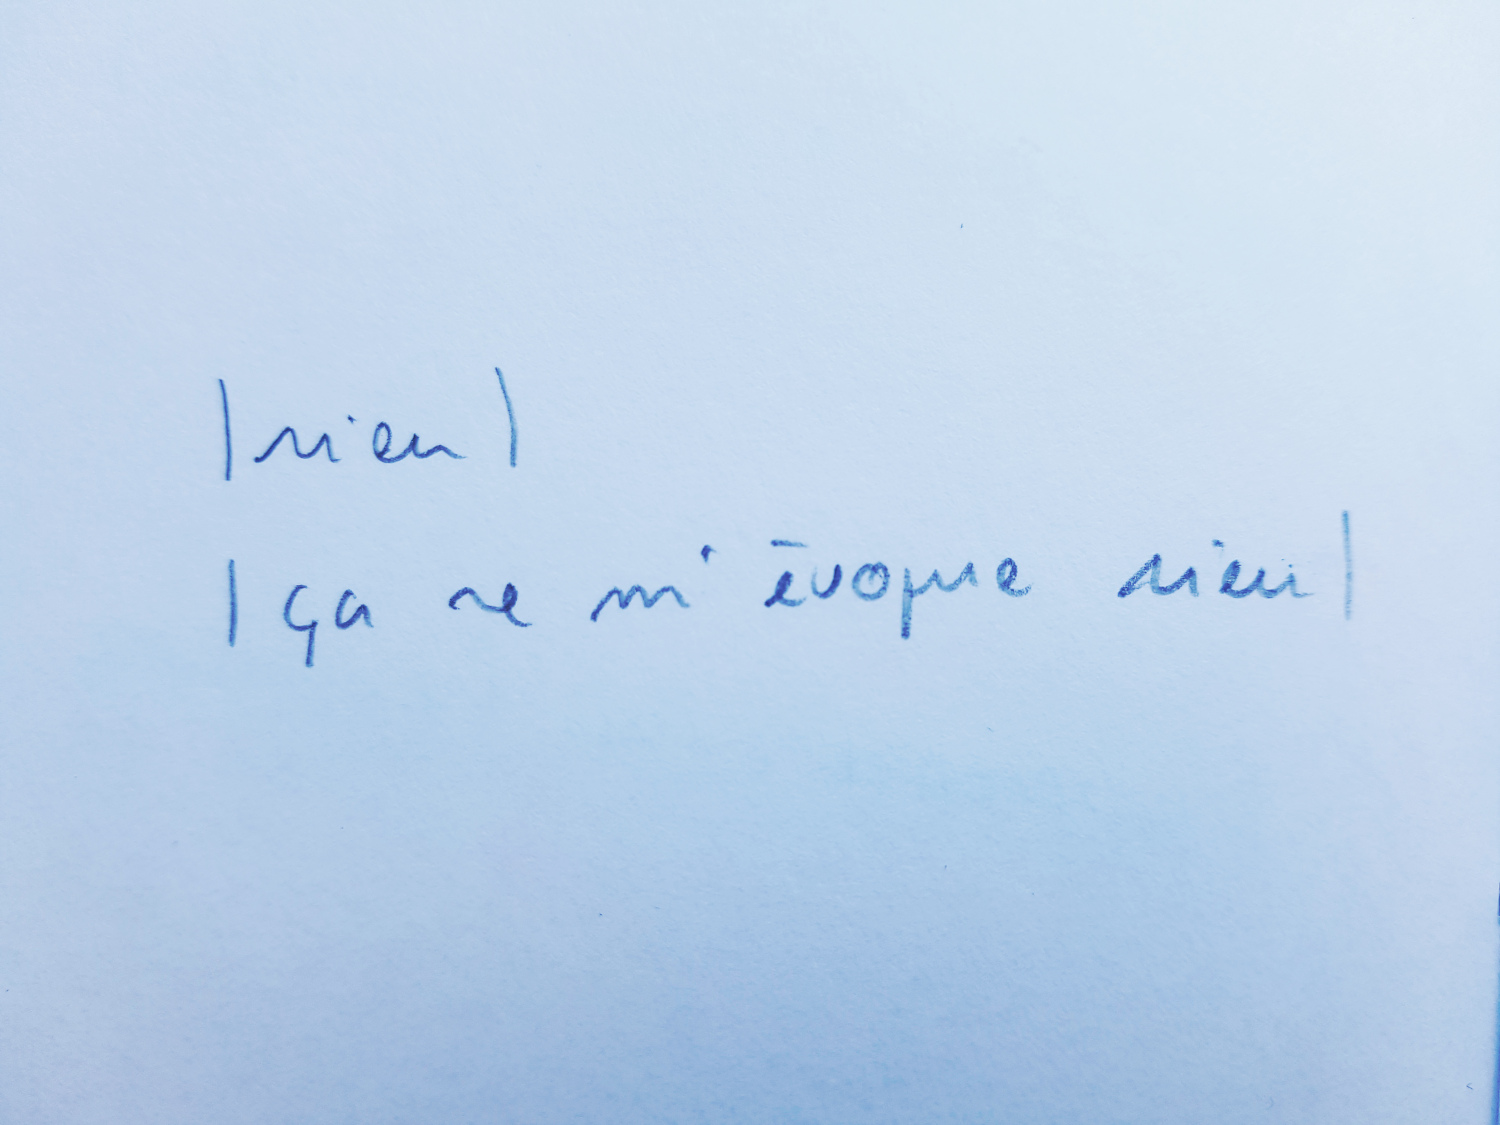 |rien|
|ça ne m'évoque rien|